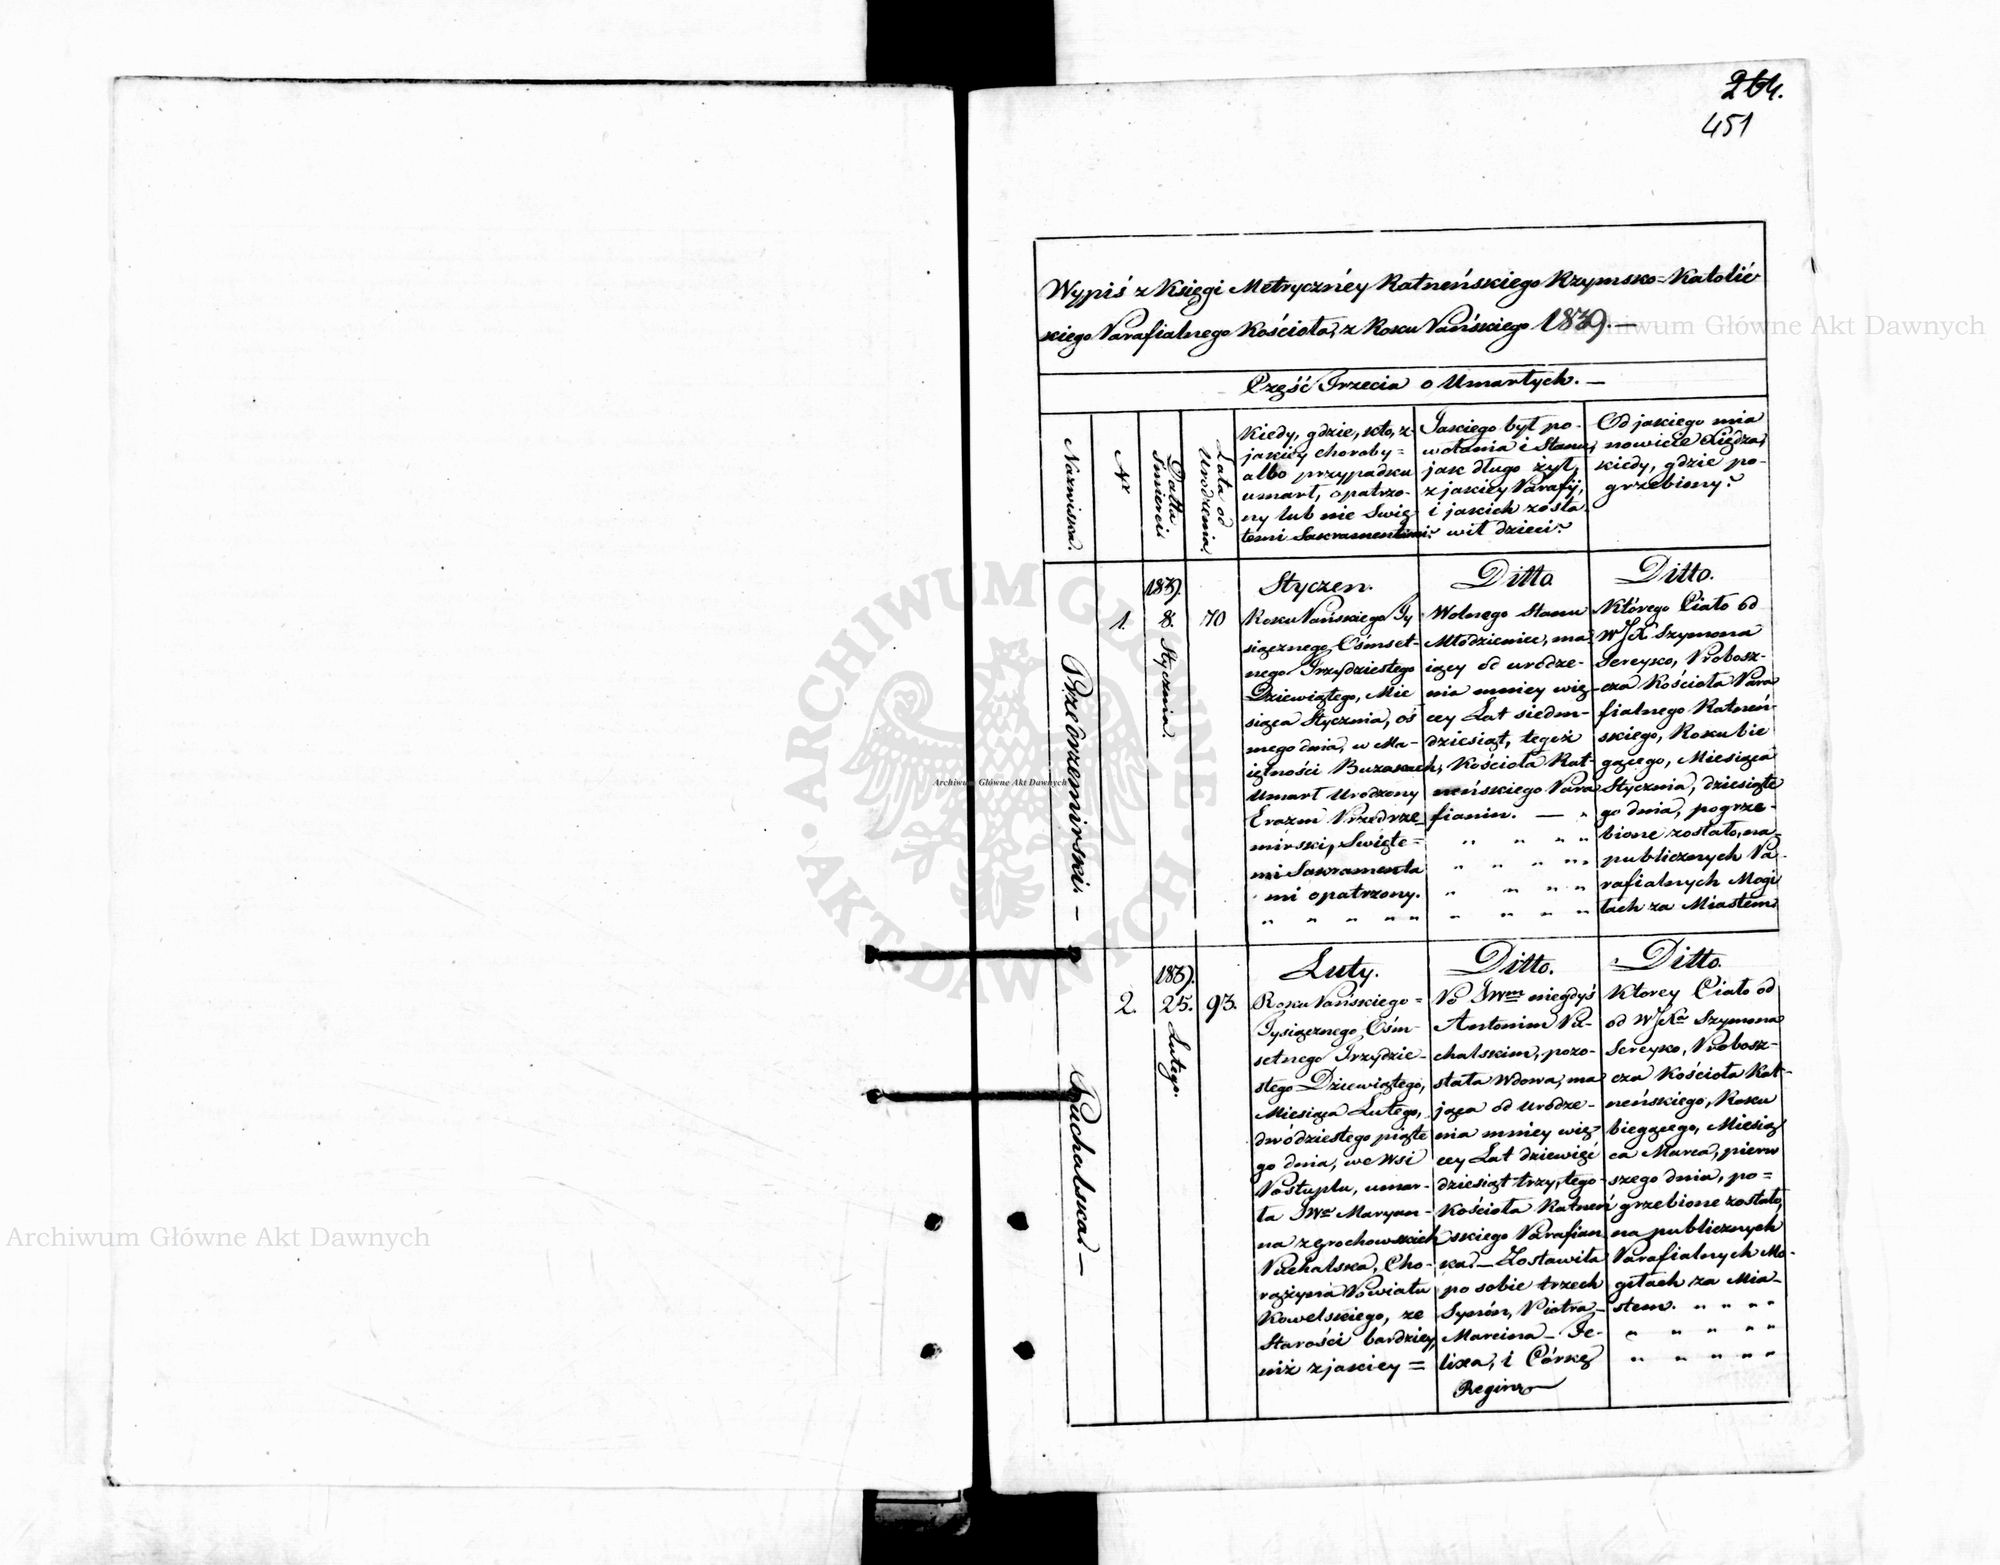 264.
451
Wypis z Księgi Metrycznéy Ratneńskiego Rzymsko=Katolic
kiego Parafialnego Kościoła, z Roku Pańskiego 1839.—
Część Trzecia o Umarłych.—
Nazwiska.
Nr
Datta
Śmierci
Lata od
Urodzenia.
Kiedy, gdzie, kto, z
jakiey choroby=
albo przypadku
umarł, opatrzo-
ny lub nie Swię
temi Sakramentami?
Jakiego był po-
wołania i Stanu,
jak długo żył,
z jakiey Parafij,
i jakich zosta
wił dzieci?
Od jakiego mia
nowicie Xiędza,
kiedy, gdzie po-
grzebiony?
Przedrzemirski.—
1.
1839.
8. Stycznia.
70
Styczen.
Roku Pańskiego Ty
siącznego Ośmset-
nego Trzydziestego
Dziewiątego, Mie
siąca Stycznia, ós
mego dnia, w Ma-
iętności Buzakach,
Umarł Urodzony
Erazm Przedrze-
mirski, Swięte=
mi Sakramenta
mi opatrzony.
Ditto
Wolnego Stanu
Młodzieniec, ma
iący od urodze-
nia mniey wię-
cey Lat siedm-
dziesiąt, tegoż
Kościoła Rat-
neńskiego Para
fianin. —
Ditto.
Którego Ciało od
WJX Szymona
Sereyko, Probosz-
cza Kościoła Para
fialnego Ratneń-
skiego, Roku bie
gącego, Miesiąca
Stycznia, dziesiąte
go dnia, pogrze-
bione zostało, na
publicznych Pa-
rafialnych Mogi
łach za Miastem
Puchalska.—
2.
1839.
25. Lutego.
93.
Luty.
Roku Pańskiego=
Tysiącznego Ośm-
setnego Trzydzie-
stego Dziewiątego,
Miesiąca Lutego,
dwódziestego piąte
go dnia, we Wsi
Postuplu, umar-
ła JWa Maryan-
na z Grochowskich
Puchalska, Cho-
rążyna Powiatu
Kowelskiego, ze
Starości bardziey,
niż z jakiey=
Ditto.
Po JWm niegdyś
Antonim Pu-
chalskim, pozo-
stała Wdowa, ma
jąca od urodze-
nia mniey wię
cey Lat dziewięć
dziesiąt trzy, tego-
Kościoła Ratneń
skiego Parafian
ka.— Zostawiła
po sobie trzech
Synów, Piotra—
Marcina— Fe-
lixa, i Córkę
Reginę
Ditto.
Ktorey Ciało od
od WJXa Szymona
Sereyko, Probosz-
cza Kościoła Rat-
neńskiego, Roku
biegącego, Miesią
ca Marca, pierw
szego dnia, po=
grzebione zostało,
na publicznych
Parafialnych Mo-
giłach za Mia-
stem.
Archiwum Główne Akt Dawnych
Archiwum Główne Akt Dawnych
Archiwum Główne Akt Dawnych
ARCHIWUM GŁÓWNE • AKT DAWNYCH •